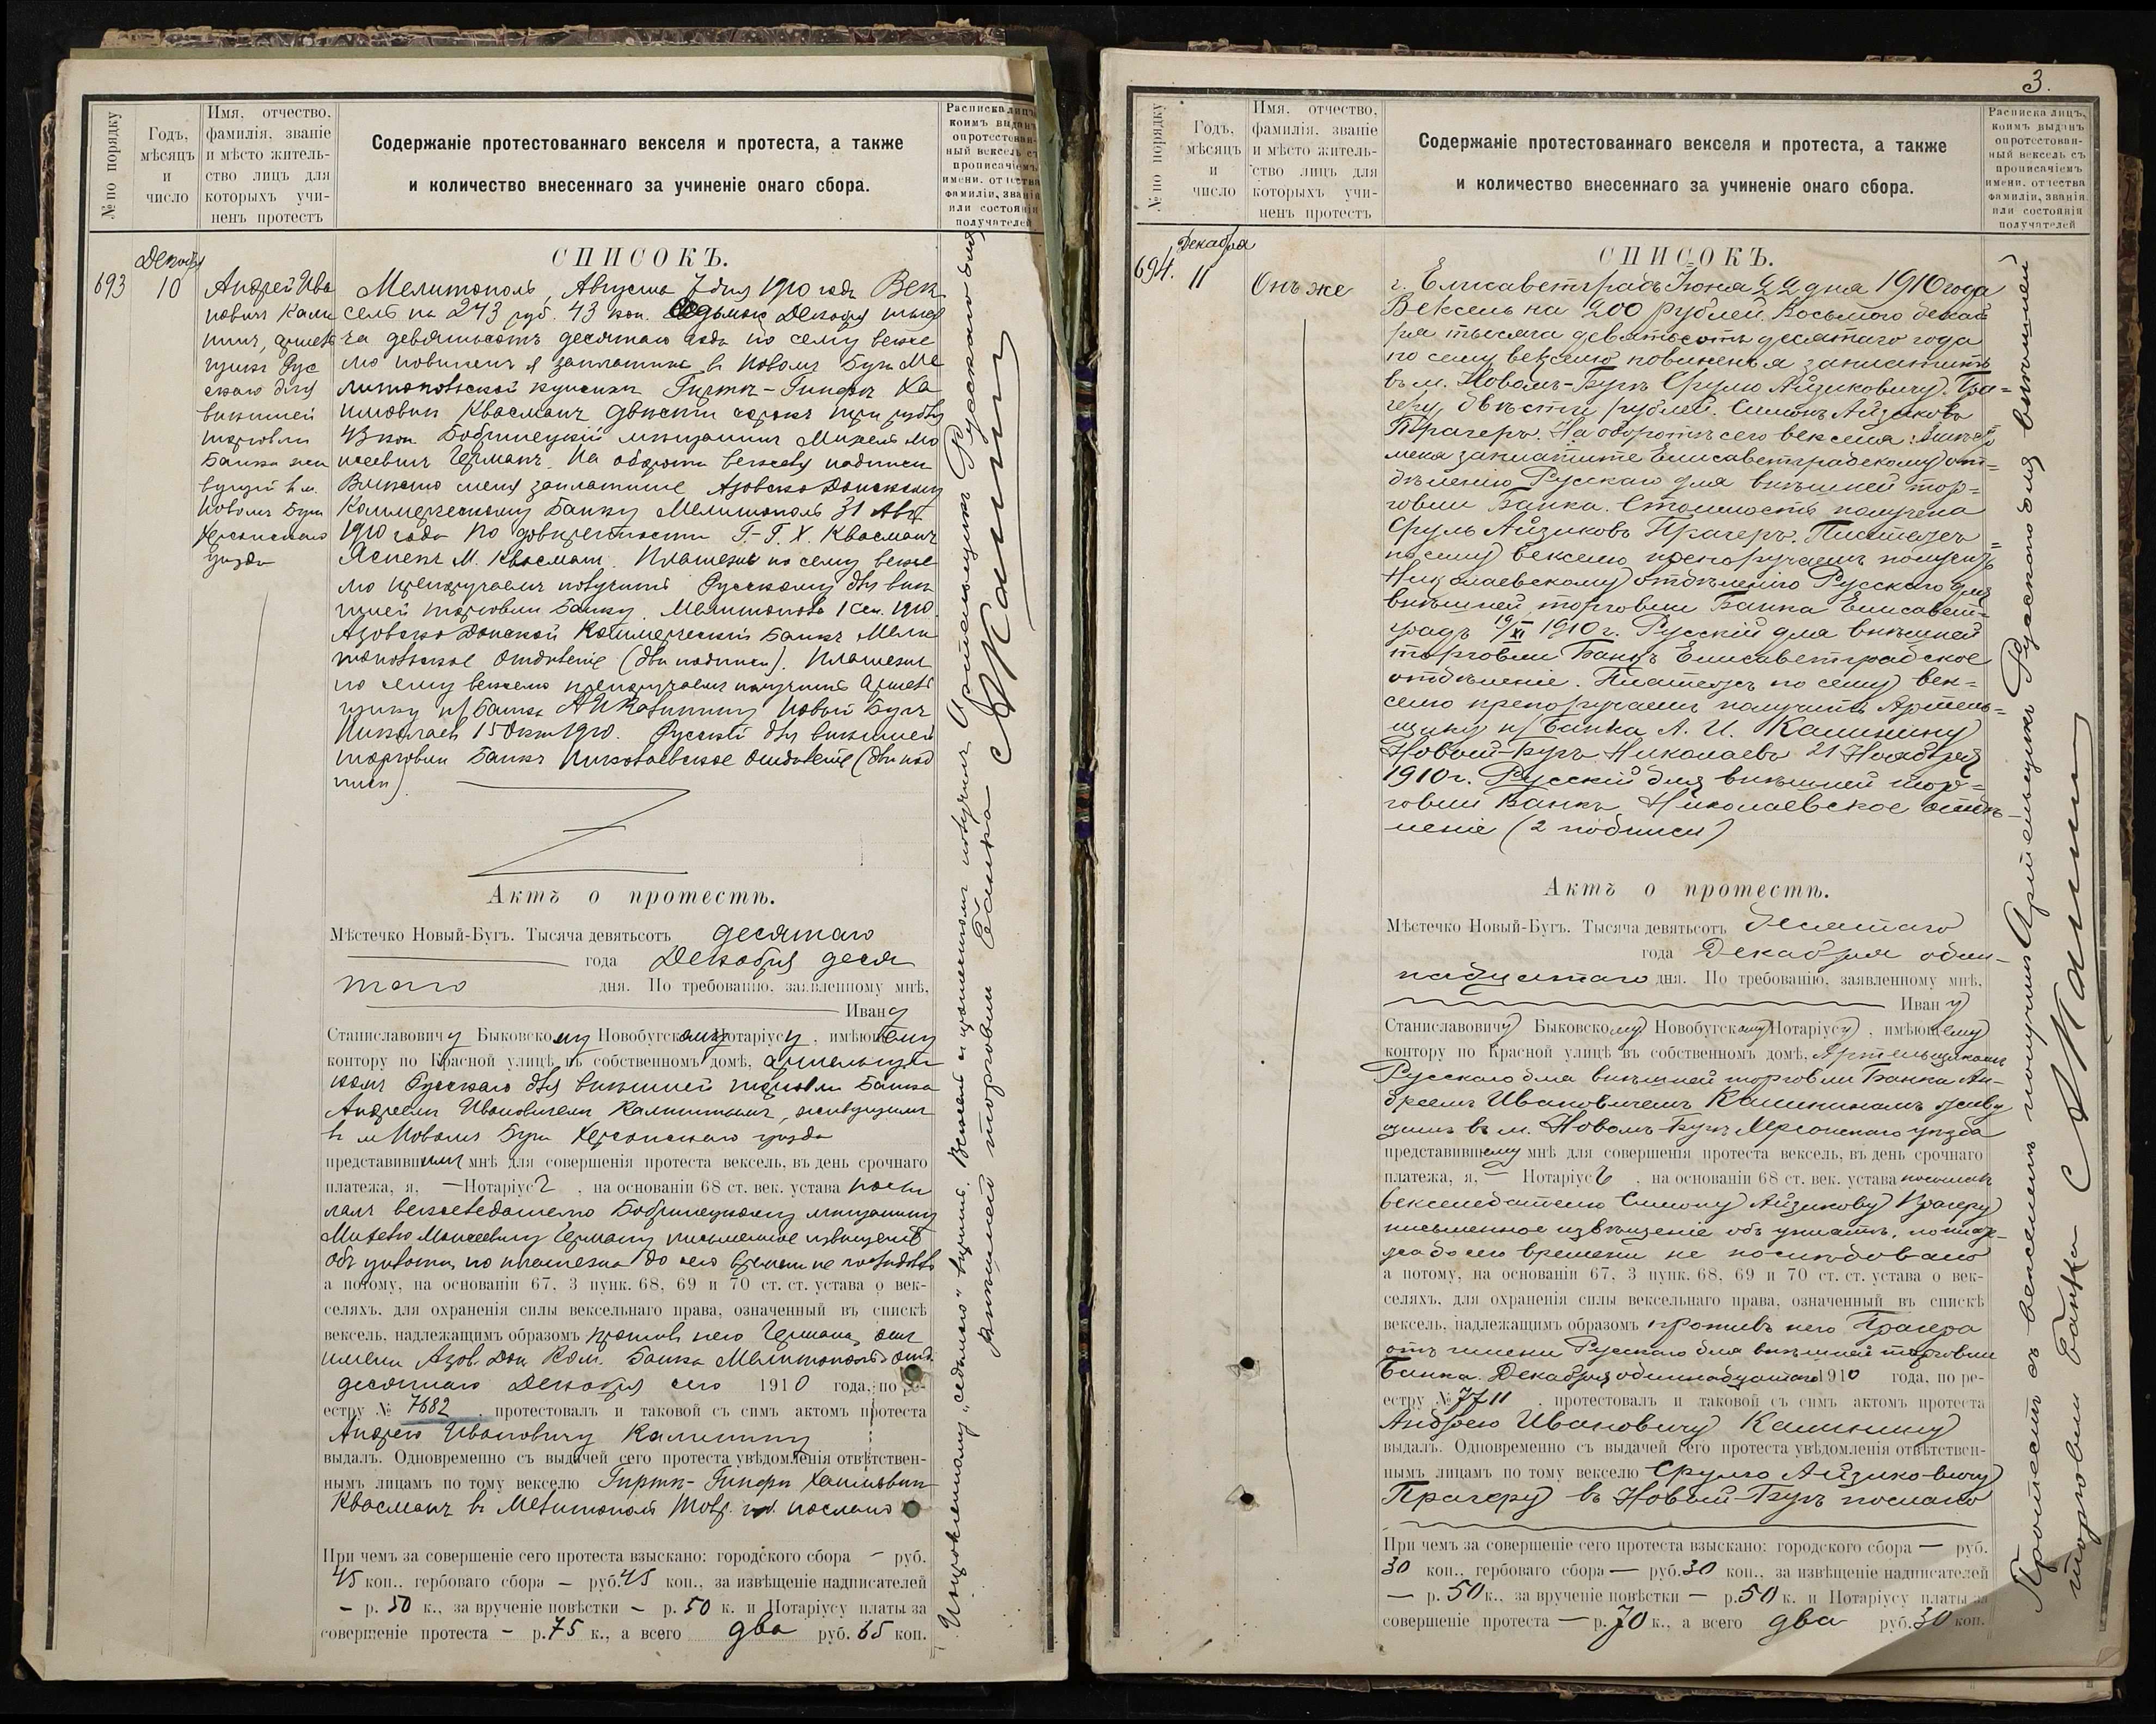 № по порядку
Годъ,
мѣсяцъ
и
число
Имя, отчество,
фамилія, званіе
и мѣсто житель-
ство лицъ для
которыхъ учи-
ненъ протестъ
Содержаніе протестованнаго векселя и протеста, а также
и количество внесеннаго за учиненіе онаго сбора.
Расписка лицъ,
коимъ выданъ
опротестован-
ный вексель съ
прописаніемъ
имени, отчества
фамиліи, званія
или состоянія
получателей
693
10
Андрей Ива
новичъ Кали
нинъ, артель
щикъ Рус
скаго для
внѣшней
торговли
Банка жи
вущій в м.
Новомъ Бугѣ
Херсонскаго
уѣзда
СПИСОКЪ.
Мелитополь, Августа 7 дня 1910 года Век
сель на 243 руб. 43 коп. Седьмого Декабря тыся
ча девятьсотъ десятаго года по сему вексе
лю повиненъ я заплатить в Новомъ Бугѣ Ме
литопольской купчихѣ Гиртѣ-Гиндѣ Ха
имовнѣ Квасманъ двѣсти сорокъ три рубля
43 коп. Бобринецкій мѣщанинъ Михель Мо
исеевичъ Германъ. На оборотѣ векселя надписи
Вмѣсто меня заплатите Азовско Донскому
Коммерческому Банку Мелитополь 31 Авг.
1910 года По довѣренности Г.-Г. Х. Квасманъ
М. Квасманъ. Платежъ по сему вексе
лю препоручаемъ получить Русскому для внѣ
шней торговли Банку. Мелитополь 1 Сен. 1910.
Азовско Донской Коммерческій Банкъ Мели
топольское Отдѣленіе (двѣ подписи). Платежъ
по сему векселю препоручаемъ получить Артель
щику н/ Банка А И Калинину Новый Бугъ
Николаевъ 15 Окт 1910. Русскій для внѣшней
торговли Банкъ Николаевское Отдѣленіе (двѣ под
писи)
Актъ о протестѣ.
Мѣстечко Новый-Бугъ. Тысяча девятьсотъ десятаго
года Декабря деся
таго дня. По требованію, заявленному мнѣ,
Ивану
Станиславовичу Быковскому Новобугскому Нотаріусу, имѣющему
контору по Красной улицѣ въ собственномъ домѣ, артельщи
комъ Русскаго для внѣшней торговли Банка
Андреемъ Ивановичемъ Калининымъ, живущимъ
в м Новомъ Бугѣ Херсонскаго уѣзда
представившимъ мнѣ для совершенія протеста вексель, въ день срочнаго
платежа, я, — Нотаріусъ, на основаніи 68 ст. век. устава посы
лалъ векселедателю Бобринецкому мѣщанину
Михелю Моисеевичу Герману письменное извѣщеніе
объ уплатѣ, но платежа до сего времени не послѣдовало
а потому, на основаніи 67, 3 пунк. 68, 69 и 70 ст. ст. устава о век-
селяхъ, для охраненія силы вексельнаго права, означенный въ спискѣ
вексель, надлежащимъ образомъ противъ него Германа, отъ
имени Азов. Дон Ком. Банка Мелитополь. отд.
десятаго Декабря сего 1910 года, по ре-
естру № 7682, протестовалъ и таковой съ симъ актомъ протеста
Андрею Ивановичу Калинину
выдалъ. Одновременно съ выдачей сего протеста увѣдомленія отвѣтствен-
нымъ лицамъ по тому векселю Гиртѣ-Гиндѣ Хаимовнѣ
Квасманъ в Мелитополь Тавр. губ. послано
При чемъ за совершеніе сего протеста взыскано: городского сбора — руб.
45 коп., гербоваго сбора — руб. 45 коп., за извѣщеніе надписателей
— р. 50 к., за врученіе повѣстки — р. 50 к. и Нотаріусу платы за
совершеніе протеста — р. 75 к., а всего два руб. 65 коп.
"седьмого" вѣрить. Вексель и протестъ получилъ Артельщикъ Русскаго для
внѣшней торговли Банка А Калининъ
3.
№ по порядку
Годъ,
мѣсяцъ
и
число
Имя, отчество,
фамилія, званіе
и мѣсто житель-
ство лицъ для
которыхъ учи-
ненъ протестъ
Содержаніе протестованнаго векселя и протеста, а также
и количество внесеннаго за учиненіе онаго сбора.
Расписка лицъ,
коимъ выданъ
опротестован-
ный вексель съ
прописаніемъ
имени, отчества
фамиліи, званія
или состоянія
получателей
694.
Декабря
11
Онъ же
СПИСОКЪ.
г. Елисаветградъ Іюня 22 дня 1910 года
Вексель на 200 рублей. Восьмого декаб
ря тысяча девятьсотъ десятаго года
по сему векселю повиненъ я заплатить
въ м. Новомъ-Бугѣ Срулю Айзиковичу Пра=
геру, двѣсти рублей. Симонъ Айзиковъ
Прагеръ. На оборотѣ сего векселя: Вмѣсто
меня заплатите Елисаветградскому от=
дѣленію Русскаго для внѣшней тор=
говли Банка. Стоимость получена
Сруль Айзиковъ Прагеръ. Платежъ
по сему векселю препоручаемъ получить
Николаевскому отдѣленію Русскаго для
внѣшней торговли Банка Елисавет=
градъ 19/XI 1910 г. Русскій для внѣшней
торговли Банкъ Елисаветградское
отдѣленіе. Платежъ по сему век=
селю препоручаемъ получить Артель=
щику н/ Банка А. И. Калинину
Новый-Бугъ Николаевъ 21 Ноября
1910 г. Русскій для внѣшней тор=
говли Банкъ Николаевское отдѣ-
леніе (2 подписи)
Актъ о протестѣ.
Мѣстечко Новый-Бугъ. Тысяча девятьсотъ десятаго
года Декабря один-
надцатаго дня. По требованію, заявленному мнѣ,
Ивану
Станиславовичу Быковскому Новобугскому Нотаріусу, имѣющему
контору по Красной улицѣ въ собственномъ домѣ, Артельщикомъ
Русскаго для внѣшней торговли Банка Ан-
дреемъ Ивановичемъ Калининымъ живу
щимъ въ м. Новомъ-Бугѣ Херсонскаго уѣзда
представившему мнѣ для совершенія протеста вексель, въ день срочнаго
платежа, я, — Нотаріусъ, на основаніи 68 ст. век. устава посылалъ
векселедателю Симону Айзикову Прагеру
письменное извѣщеніе объ уплатѣ, но плате-
жа до сего времени не послѣдовало
а потому, на основаніи 67, 3 пунк. 68, 69 и 70 ст. ст. устава о век-
селяхъ, для охраненія силы вексельнаго права, означенный въ спискѣ
вексель, надлежащимъ образомъ противъ него Прагера
отъ имени Русскаго для внѣшней торговли
Банка. Декабря одиннадцатаго 1910 года, по ре-
естру № 7711 протестовалъ и таковой съ симъ актомъ протеста
Андрею Ивановичу Калинину
выдалъ. Одновременно съ выдачей сего протеста увѣдомленія отвѣтствен-
нымъ лицамъ по тому векселю Срулю Айзиковичу
Прагеру въ Новый-Бугъ послано
При чемъ за совершеніе сего протеста взыскано: городского сбора — руб.
30 коп., гербоваго сбора — руб. 30 коп., за извѣщеніе надписателей
— р. 50 к., за врученіе повѣстки — р. 50 к. и Нотаріусу платы за
совершеніе протеста — р. 70 к., а всего два руб. 30 коп.
Протестъ съ векселемъ получилъ Артельщикъ Русскаго для внѣшней
торговли Банка А Калининъ